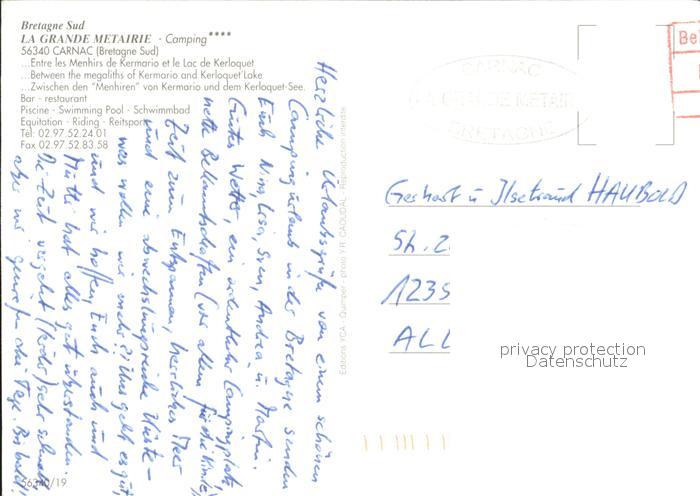 Bretagne Sud
LA GRANDE METAIRIE - Camping ****
56340 CARNAC (Bretagne Sud)
...Entre les Menhirs de Kermario et le Lac de Kerloquet
...Between the megaliths of Kermario and Kerloquet'Lake
...Zwischen den "Menhiren" van Kermario und dem Kerloquet-See.
Bar - restaurant
Piscine - Swimming Pool - Schwimmbad
Equitation - Riding - Reitsport
Tél: 02.97.52.24.01
Fax 02.97.52.83.58
Herzliche Urlaubsgrüße von einem schönen
Campingurlaub in der Bretagne senden
Euch Sven, Andrea u. Martin.
Gutes Wetter, ein ordentlicher Campingplatz,
nette Bekanntschaften (vor allem für die Kinder),
Zeit zum Entspannen, herrliches Meer
und eine abwechslungsreiche Küste -
was wollen wir mehr?! Uns geht es gut,
und wir hoffen, Euch auch und
Mutti hat alles gut überstanden.
Die Zeit vergeht sehr schnell,
aber wir genießen die Tage. Bis bald!
56340/19
Editions YCA - Quimper - photo Y.R. CAOUDAL - Reproduction interdite
CARNAC
LA GRANDE METAIRIE
BRETAGNE
Be
Gerhart u Ilsetraud HAUBOLD
Sh. 2
1235
ALL
privacy protection
Datenschutz